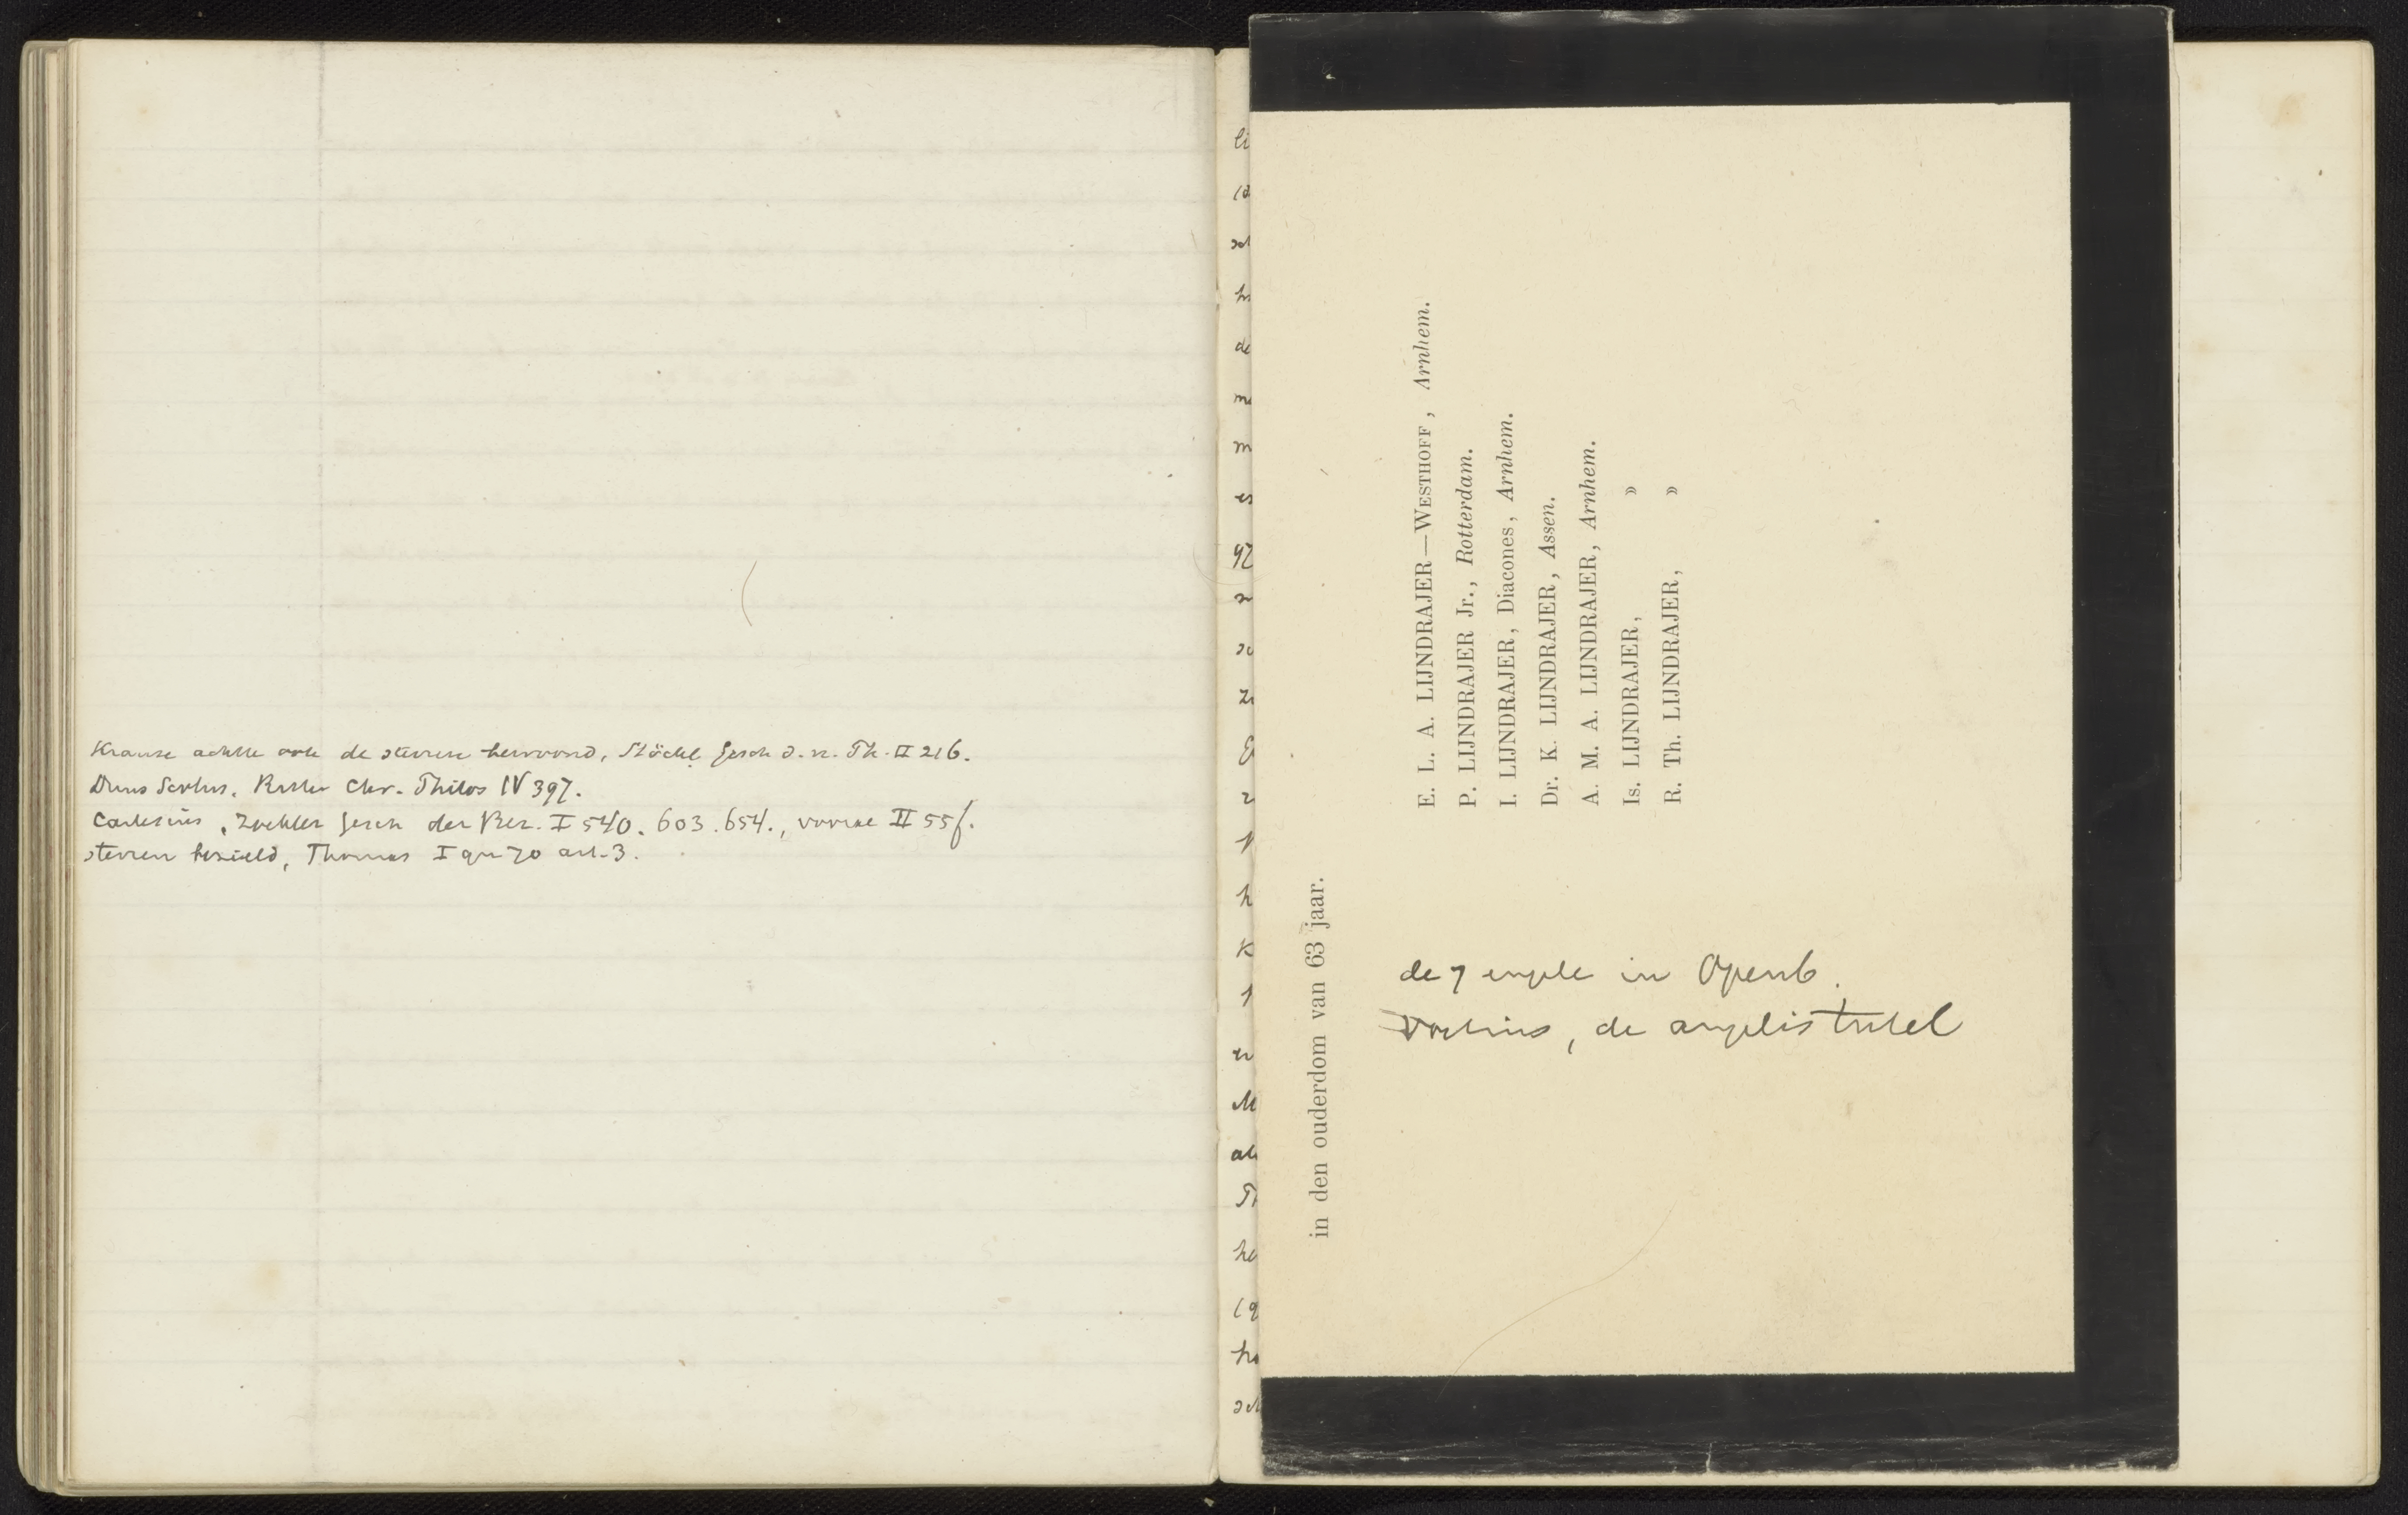 Krause achtte ook de sterren bewoond, Stöckl Gesch d. n. Ph. II 216.
Duns Scotus. Ritter Chr. Philos IV 397.
Cartesius, Zöckler Gesch der Bez. I 540. 603. 654., vooral II 55 f.
sterren bezield, Thomas I qu 70 art. 3.
in den ouderdom van 63 jaar.
E. L. A. LIJNDRAJER—WESTHOFF, Arnhem.
P. LIJNDRAJER Jr., Rotterdam.
I. LIJNDRAJER, Diacones, Arnhem.
Dr. K. LIJNDRAJER, Assen.
A. M. A. LIJNDRAJER, Arnhem.
Is. LIJNDRAJER, »
R. Th. LIJNDRAJER, »
de 7 engele in Openb.
Voetius, de angelis tutel